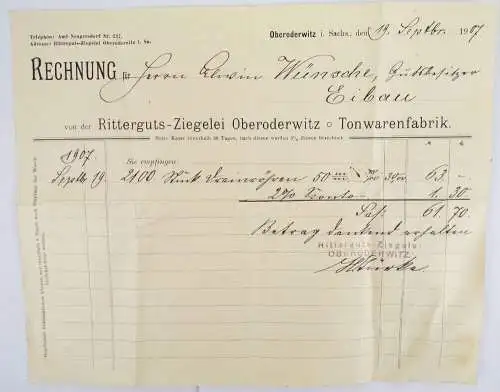 Telephon: Amt Neugersdorf Nr. 221.
Adresse: Rittergut-Ziegelei Oberoderwitz i. Sa.
Oberoderwitz i. Sachs., den 19. Septbr. 1907
RECHNUNG für Herrn Alwin Wünsche, Gutsbesitzer
Eibau
von der Ritterguts-Ziegelei Oberoderwitz ○ Tonwarenfabrik.
Netto Kasse innerhalb 30 Tagen, nach diesen werden 5% Zinsen berechnet.
1907
Sie empfingen:
Septbr 19. 2100 Stück Drainröhren 50 mm 63 –
2% Sconto 1. 30
61. 70
Betrag dankend erhalten
Ritterguts-Ziegelei
OBERODERWITZ.